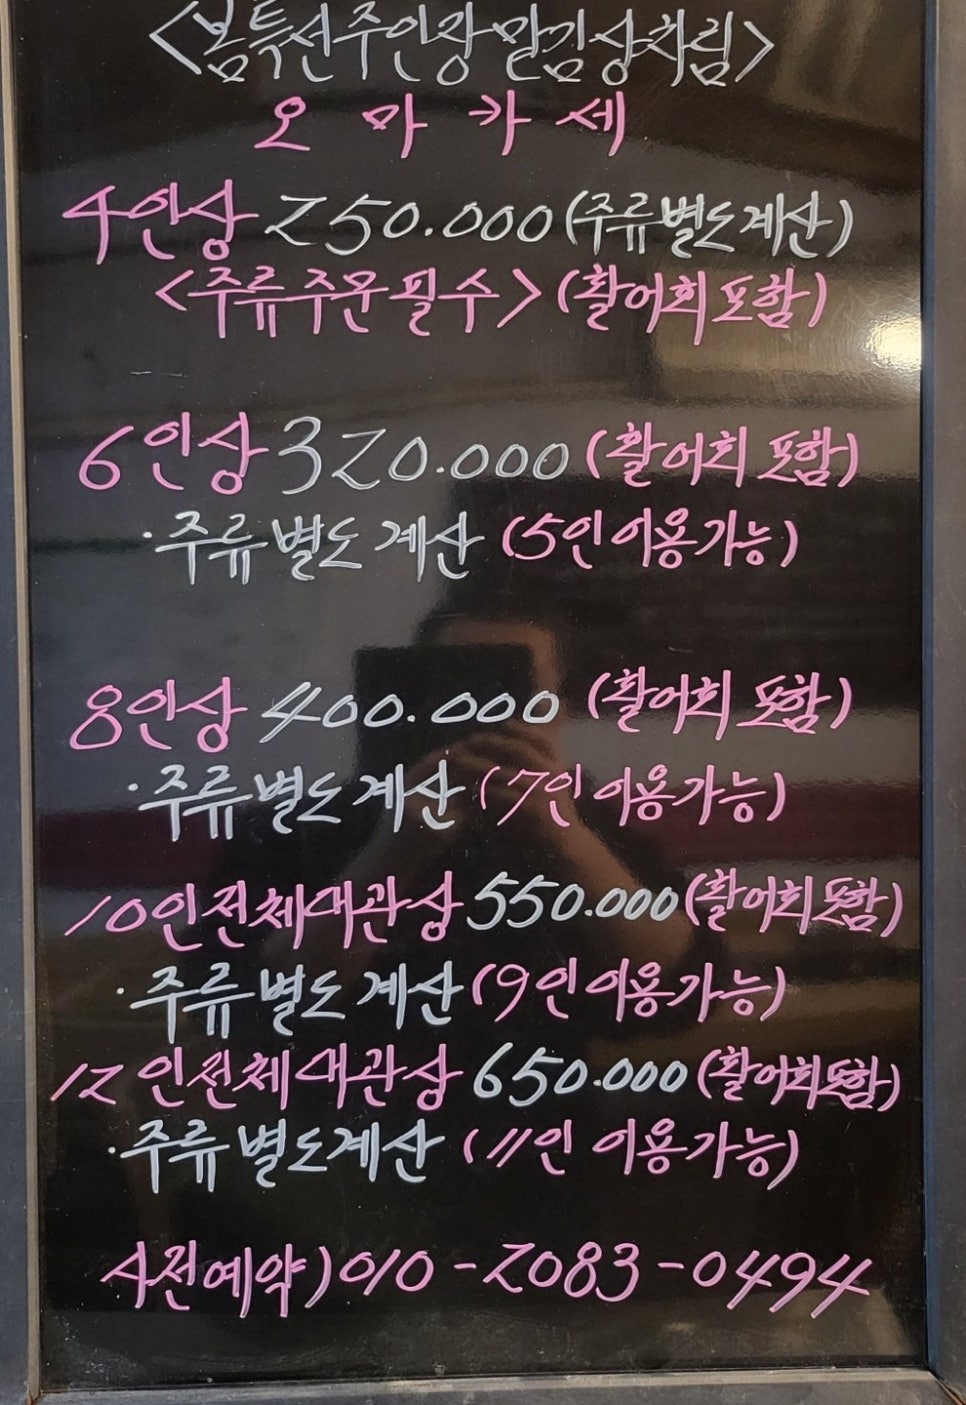 <봄특선주인장 맡김상차림>
오 마 카 세
4인상 250.000 (주류별도계산)
<주류주문필수> (활어회포함)
6인상 320.000 (활어회 포함)
·주류별도 계산 (5인이용가능)
8인상 400.000 (활어회 포함)
·주류별도 계산 (7인 이용가능)
10인전체대관상 550.000 (활어회포함)
·주류별도 계산 (9인이용가능)
12인전체대관상 650.000 (활어회포함)
·주류별도계산 (11인 이용가능)
사전예약) 010-2083-0494